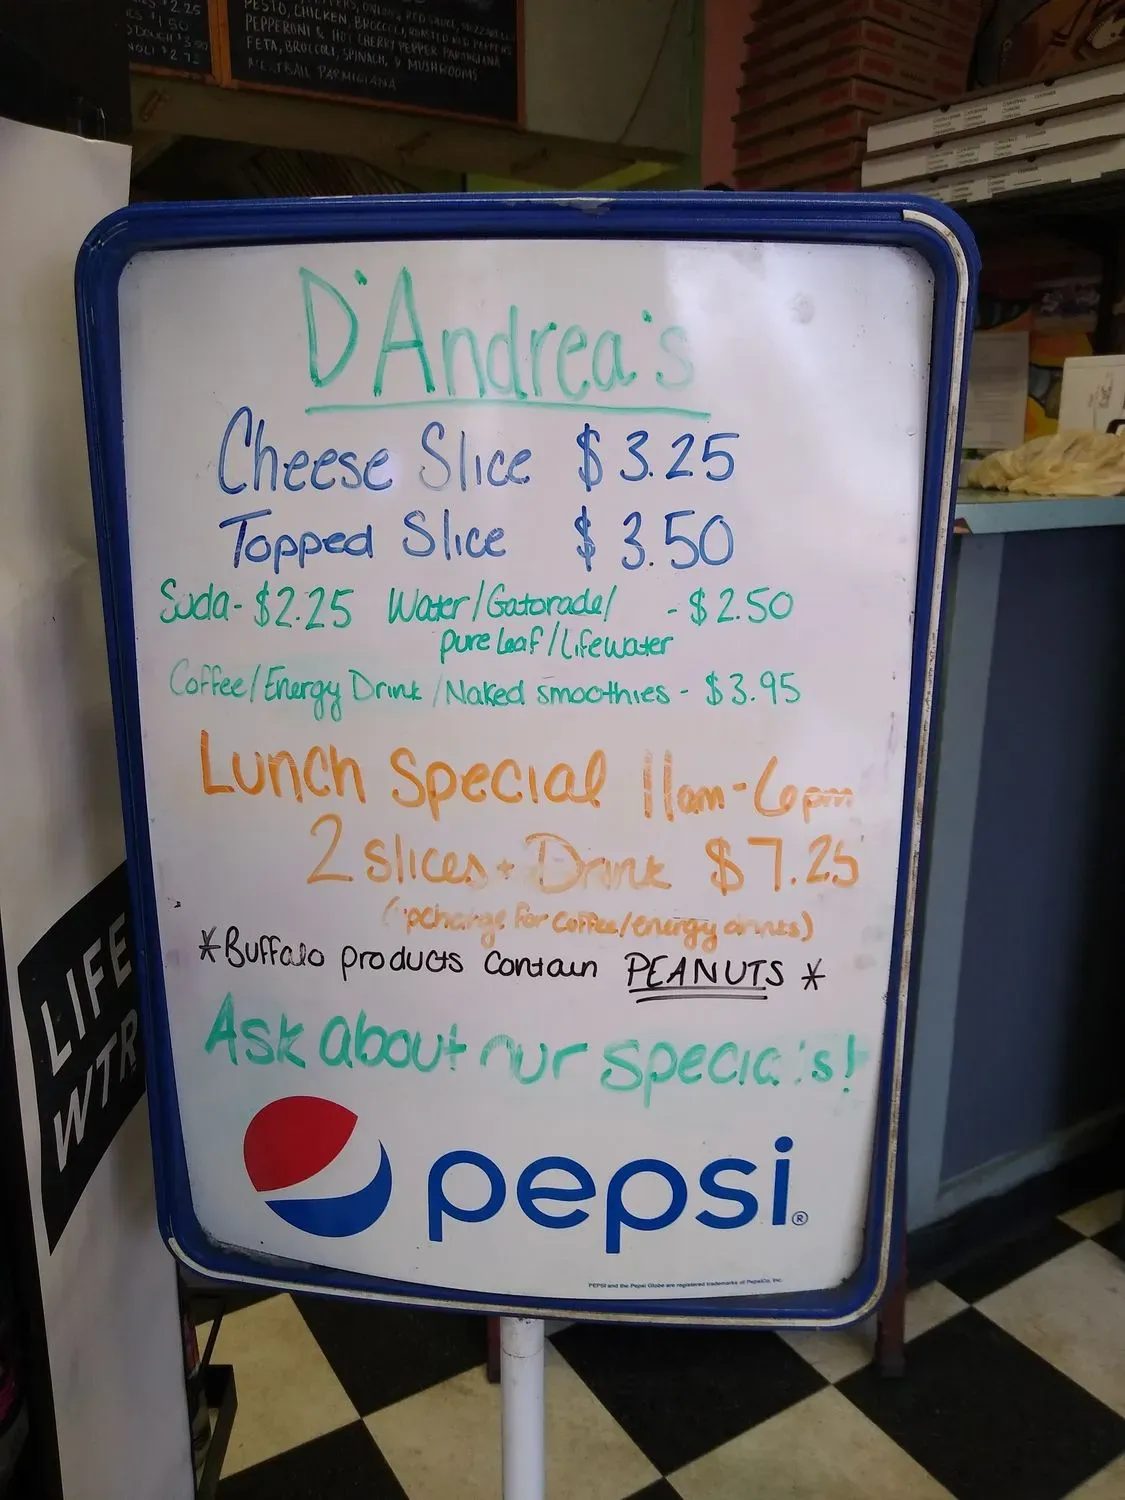 $2.25
$1.50
$2.75
PESTO, CHICKEN, BROCCOLI, ROASTED RED PEPPERS
PEPPERONI & HOT CHERRY PEPPER PARMIGIANA
FETA, BROCCOLI, SPINACH, & MUSHROOMS
PARMIGIANA
D'Andrea's
Cheese Slice $3.25
Topped Slice $3.50
Soda - $2.25 Water/Gatorade/ - $2.50
pure Leaf/Lifewater
Coffee/Energy Drink/Naked smoothies - $3.95
Lunch Special 11am-6pm
2 slices + Drink $7.25
(upcharge for coffee/energy drinks)
*Buffalo products contain PEANUTS*
Ask about our specials!
pepsi®
PEPSI and the Pepsi Globe are registered trademarks of PepsiCo, Inc.
LIFE
WTR